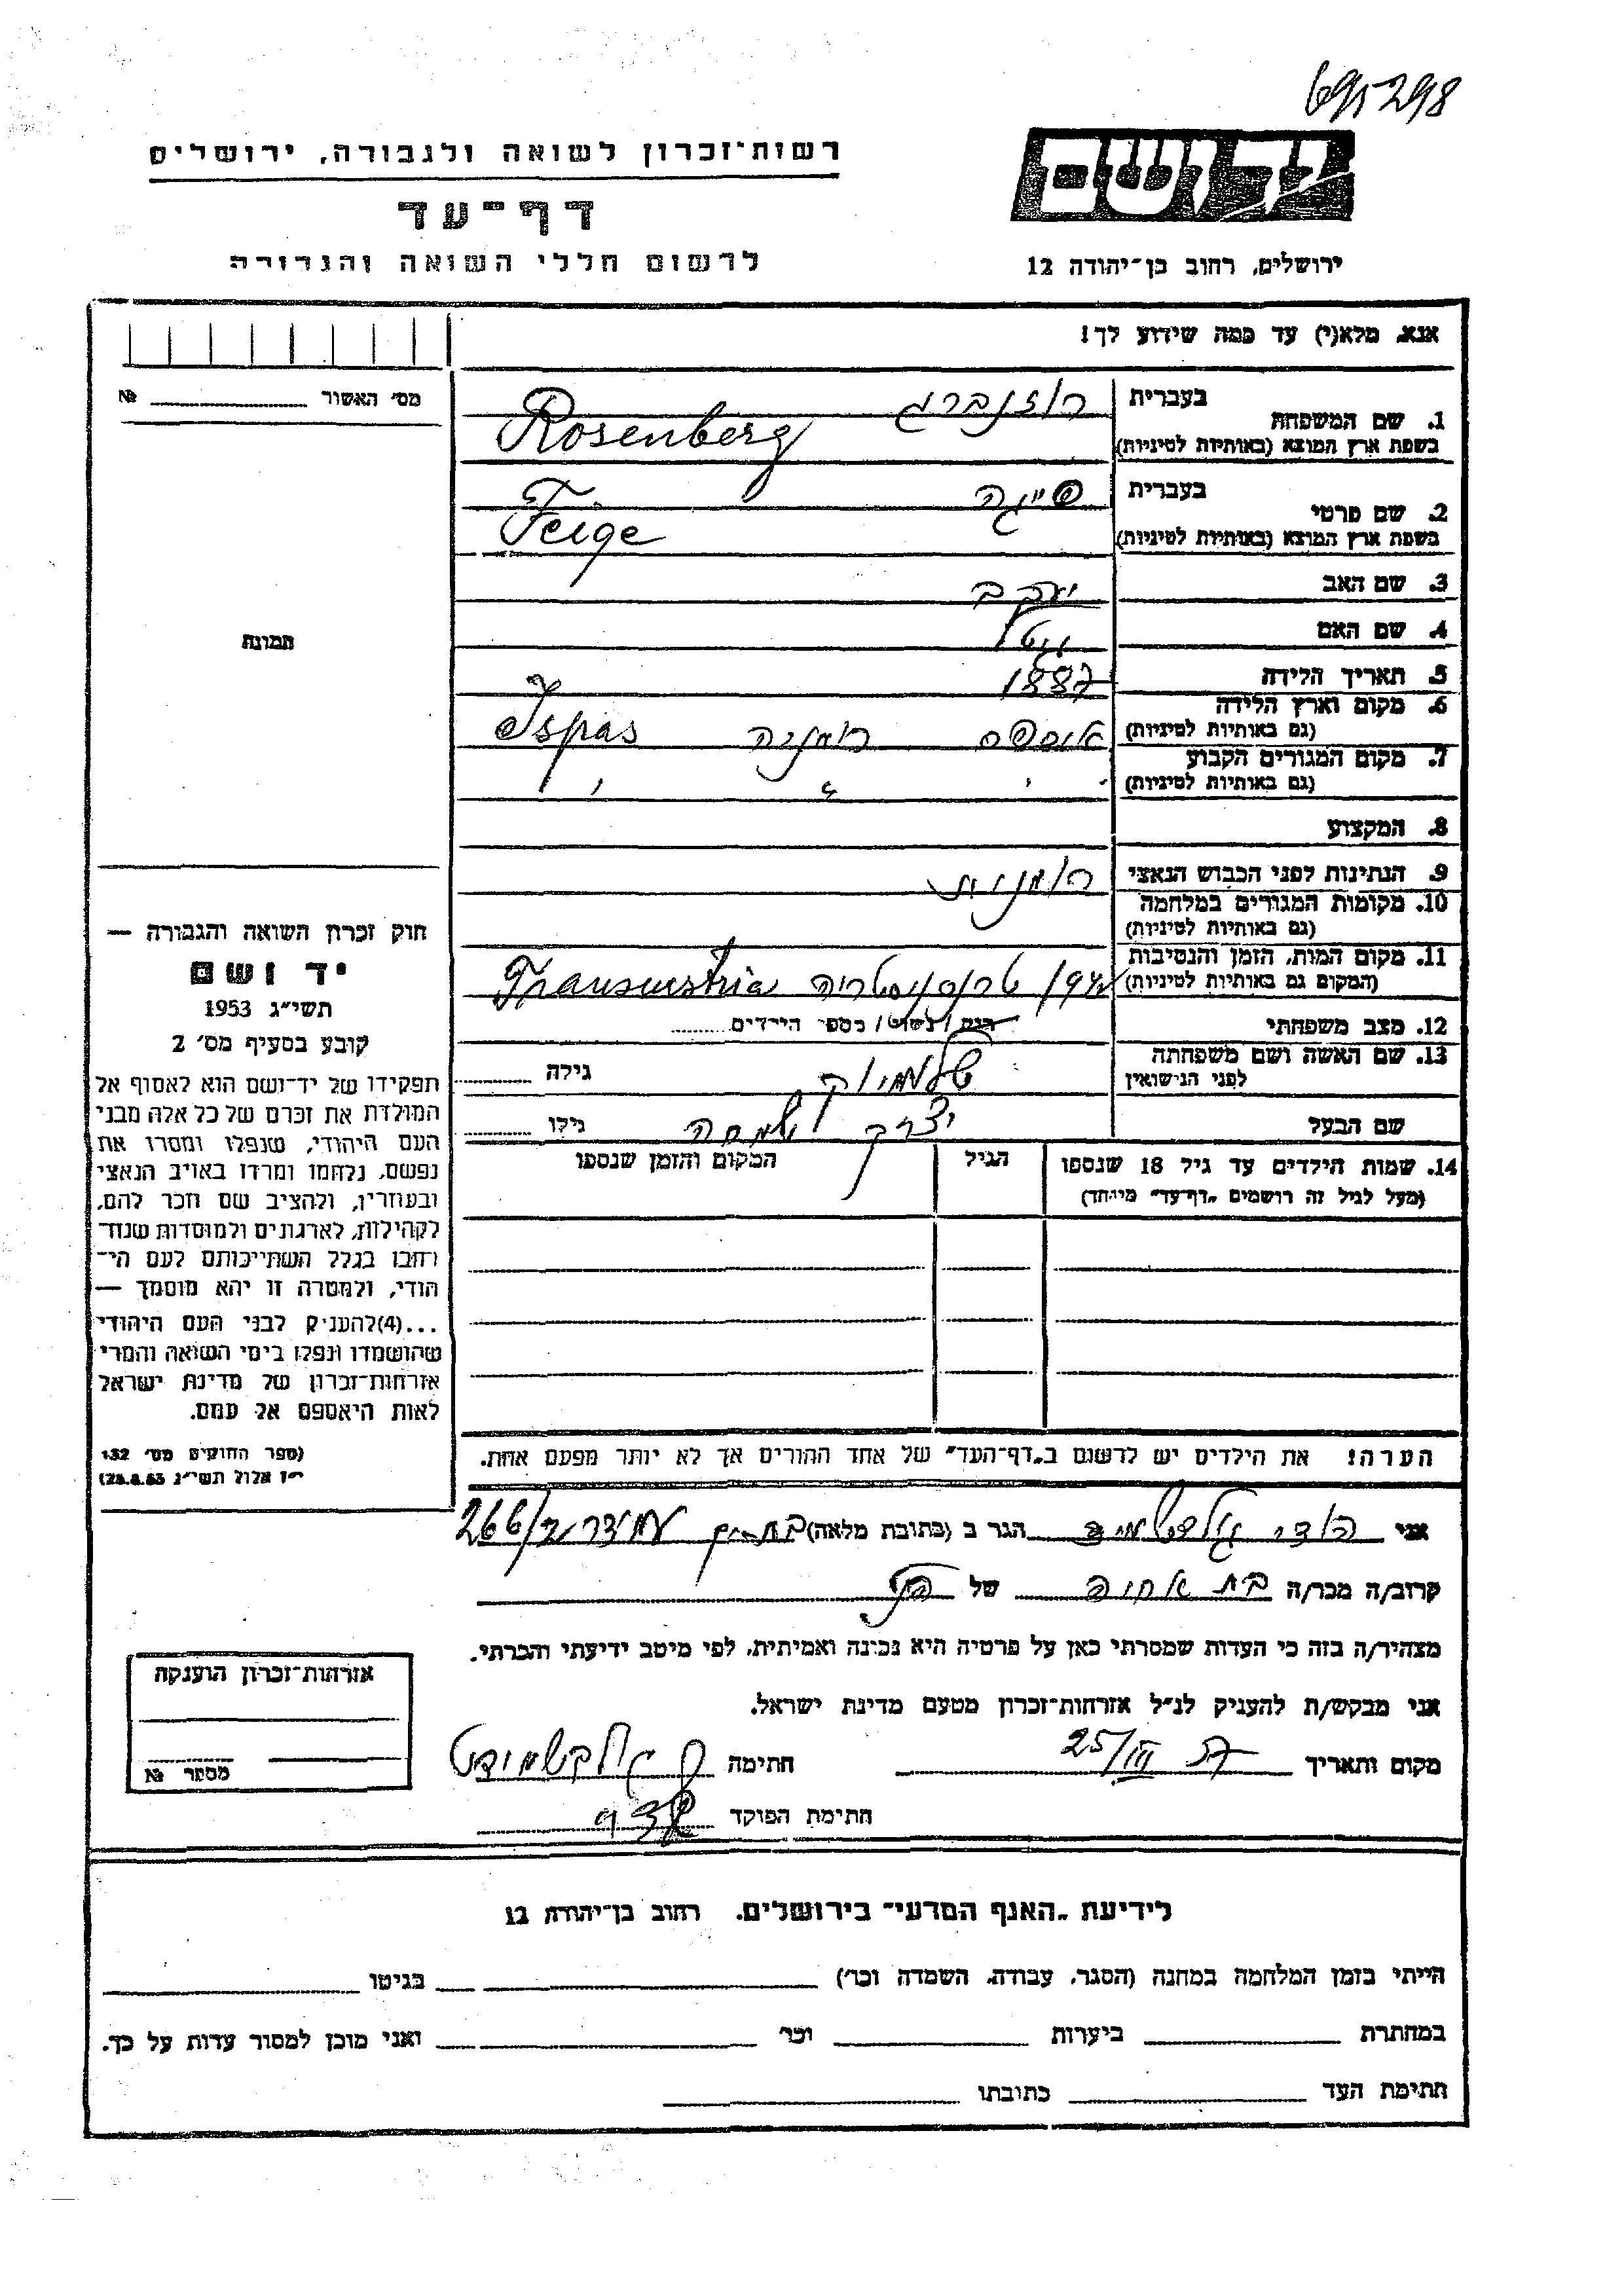 695298
יד ושם
רשות־זכרון לשואה ולגבורה, ירושלים
דף־עד
לרשום חללי השואה והגבורה
ירושלים, רחוב בן־יהודה 12
אנא, מלא(י) עד כמה שידוע לך!
מס' האשור № 
תמונה
1. שם המשפחה
בעברית רוזנברג
בשפת ארץ המוצא (באותיות לטיניות) Rosenberg
2. שם פרטי
בעברית פייגה
בשפת ארץ המוצא (באותיות לטיניות) Feige
3. שם האב יעקב
4. שם האם
5. תאריך הלידה 1887
6. מקום וארץ הלידה
(גם באותיות לטיניות) איספס רומניה Ispas
7. מקום המגורים הקבוע
(גם באותיות לטיניות) " " "
8. המקצוע
9. הנתינות לפני הכבוש הנאצי רומנית
10. מקומות המגורים במלחמה
(גם באותיות לטיניות)
11. מקום המות, הזמן והנסיבות
(המקום גם באותיות לטיניות) טרנסניסטריה Transnistria
12. מצב משפחתי רווק / נשוי / מספר הילדים
13. שם האשה ושם משפחתה
לפני הנישואין גילה
שם הבעל שמחה גילו
14. שמות הילדים עד גיל 18 שנספו
(מעל לגיל זה רושמים „דף־עד” מיוחד)
הגיל
המקום והזמן שנספו
הערה! את הילדים יש לרשום ב„דף־העד” של אחד ההורים אך לא יותר מפעם אחת.
חוק זכרון השואה והגבורה —
יד ושם
תשי״ג 1953
קובע בסעיף מס׳ 2
תפקידו של יד־ושם הוא לאסוף אל
המולדת את זכרם של כל אלה מבני
העם היהודי, שנפלו ומסרו את
נפשם, נלחמו ומרדו באויב הנאצי
ובעוזריו, ולהציב שם וזכר להם,
לקהילות, לארגונים ולמוסדות שנח־
רבו בגלל השתייכותם לעם הי־
הודי, ולמטרה זו יהא מוסמך —
...(4)להעניק לבני העם היהודי
שהושמדו ונפלו בימי השואה והמרי
אזרחות־זכרון של מדינת ישראל
לאות היאספם אל עמם.
(ספר החוקים מס׳ 132
י״ז אלול תשי״ג 28.8.53)
אני גולדשמיט הגר ב (כתובת מלאה) בת־ים 266/
קרוב/ה מכר/ה בת אחיה של הנ״ל
מצהיר/ה בזה כי העדות שמסרתי כאן על פרטיה היא נכונה ואמיתית, לפי מיטב ידיעתי והכרתי.
אני מבקש/ת להעניק לנ״ל אזרחות־זכרון מטעם מדינת ישראל.
מקום ותאריך 25/III 57 חתימה גולדשמידט
חתימת הפוקד
אזרחות־זכרון הוענקה
מספר №
לידיעת „האגף המדעי” בירושלים, רחוב בן־יהודה 12
הייתי בזמן המלחמה במחנה (הסגר, עבודה, השמדה וכו׳) בגיטו
במחתרת ביערות וכו׳ ואני מוכן למסור עדות על כך.
חתימת העד כתובתו